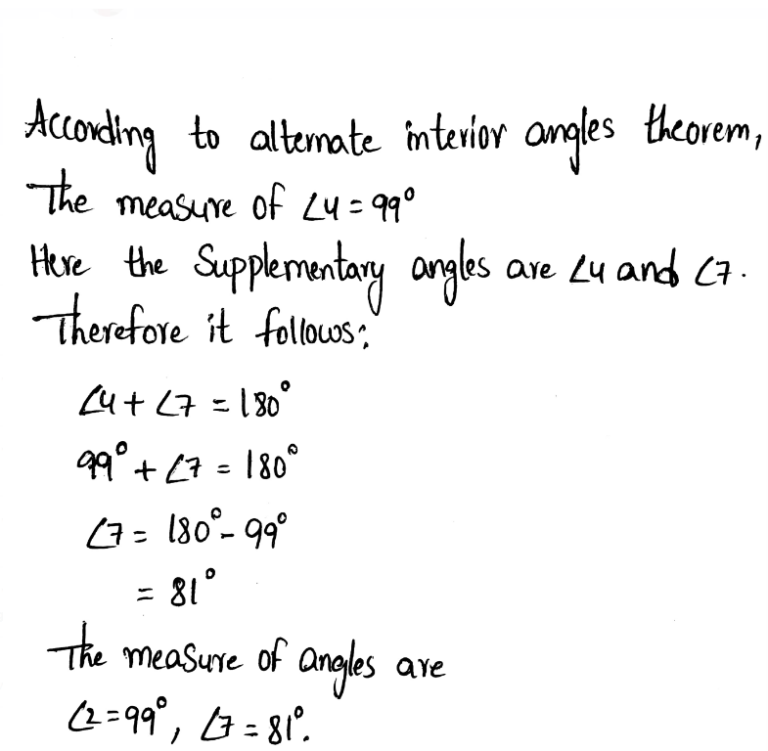 According to alternate interior angles theorem,
The measure of ∠4 = 99°
Here the Supplementary angles are ∠4 and ∠7.
Therefore it follows;
∠4 + ∠7 = 180°
99° + ∠7 = 180°
∠7 = 180° - 99°
= 81°
The measure of angles are
∠2 = 99°, ∠7 = 81°.